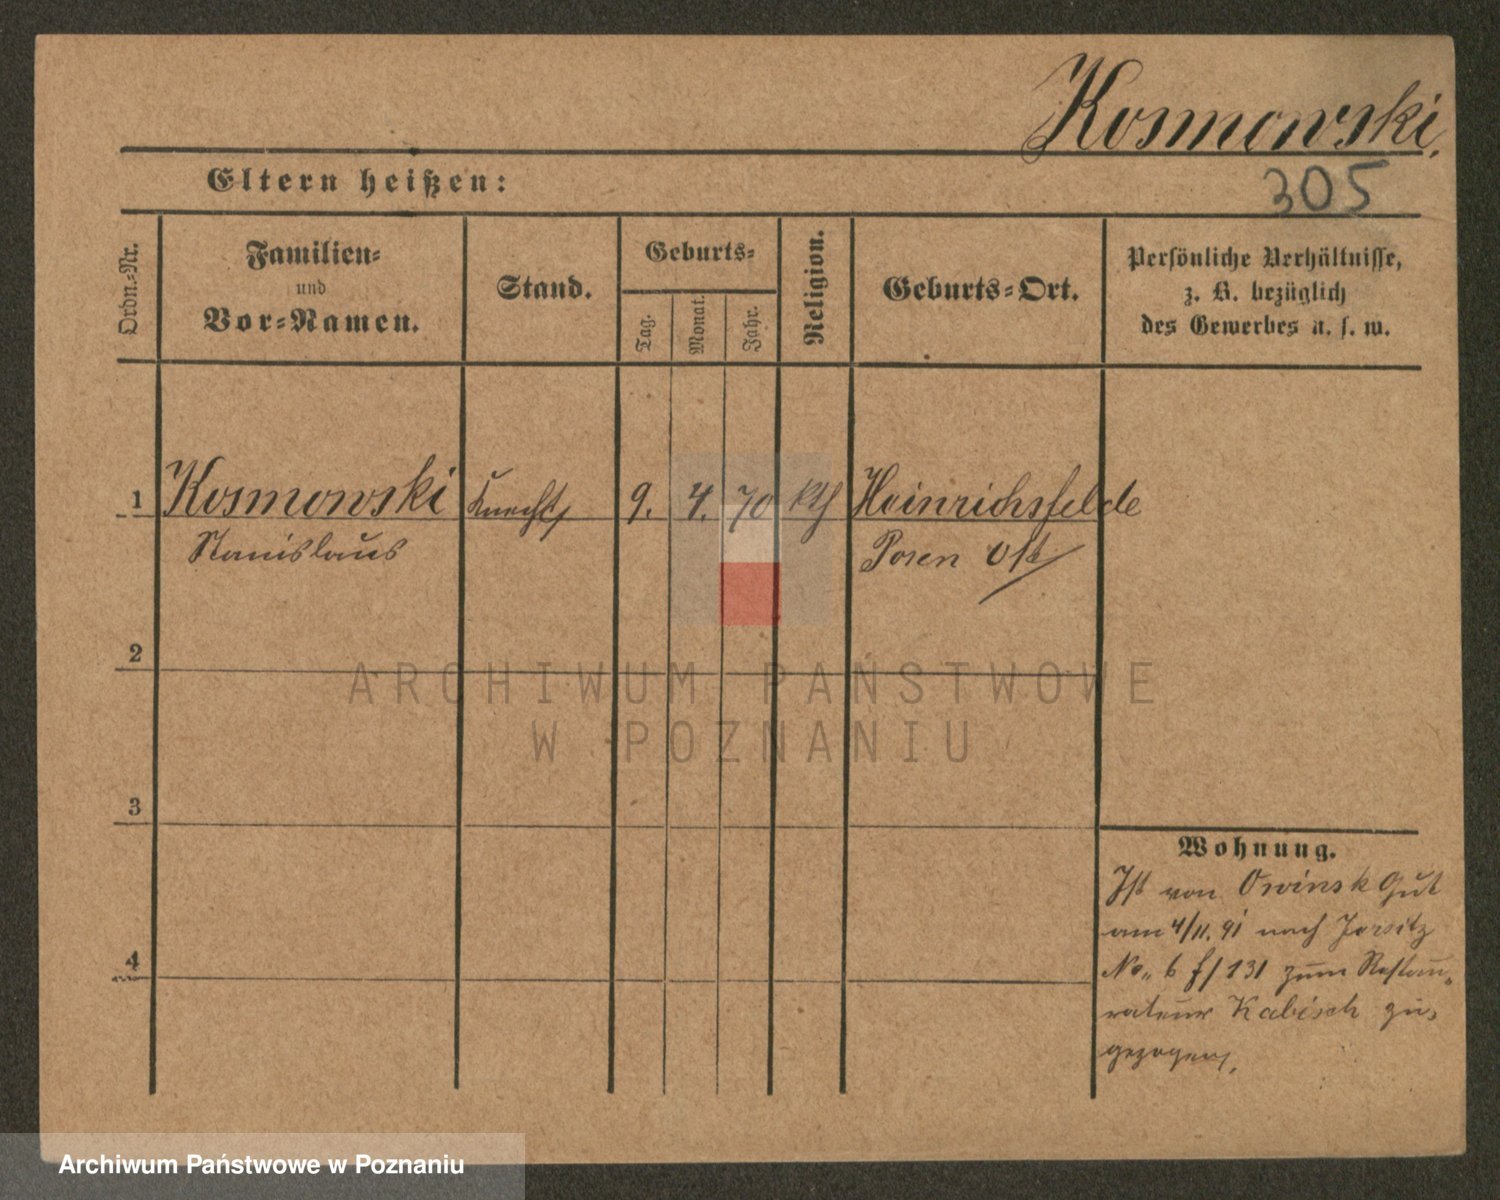 Kosmowski.
Eltern heißen:
305
Ordn.-Nr.
Familien-
und
Vor-Namen.
Stand.
Geburts-
Tag.
Monat.
Jahr.
Religion.
Geburts-Ort.
Persönliche Verhältnisse,
z. B. bezüglich
des Gewerbes u. s. w.
1 Kosmowski Knecht 9. 4. 70 kth Heinrichsfelde
Stanislaus Posen Ost
2
ARCHIWUM PAŃSTWOWE
W POZNANIU
3
Wohnung.
Ist von Owinsk Gut
am 4/11. 91 nach Jersitz
4
No 6 f/131 zum Restau-
rateur Kabisch zu-
gezogen.
Archiwum Państwowe w Poznaniu